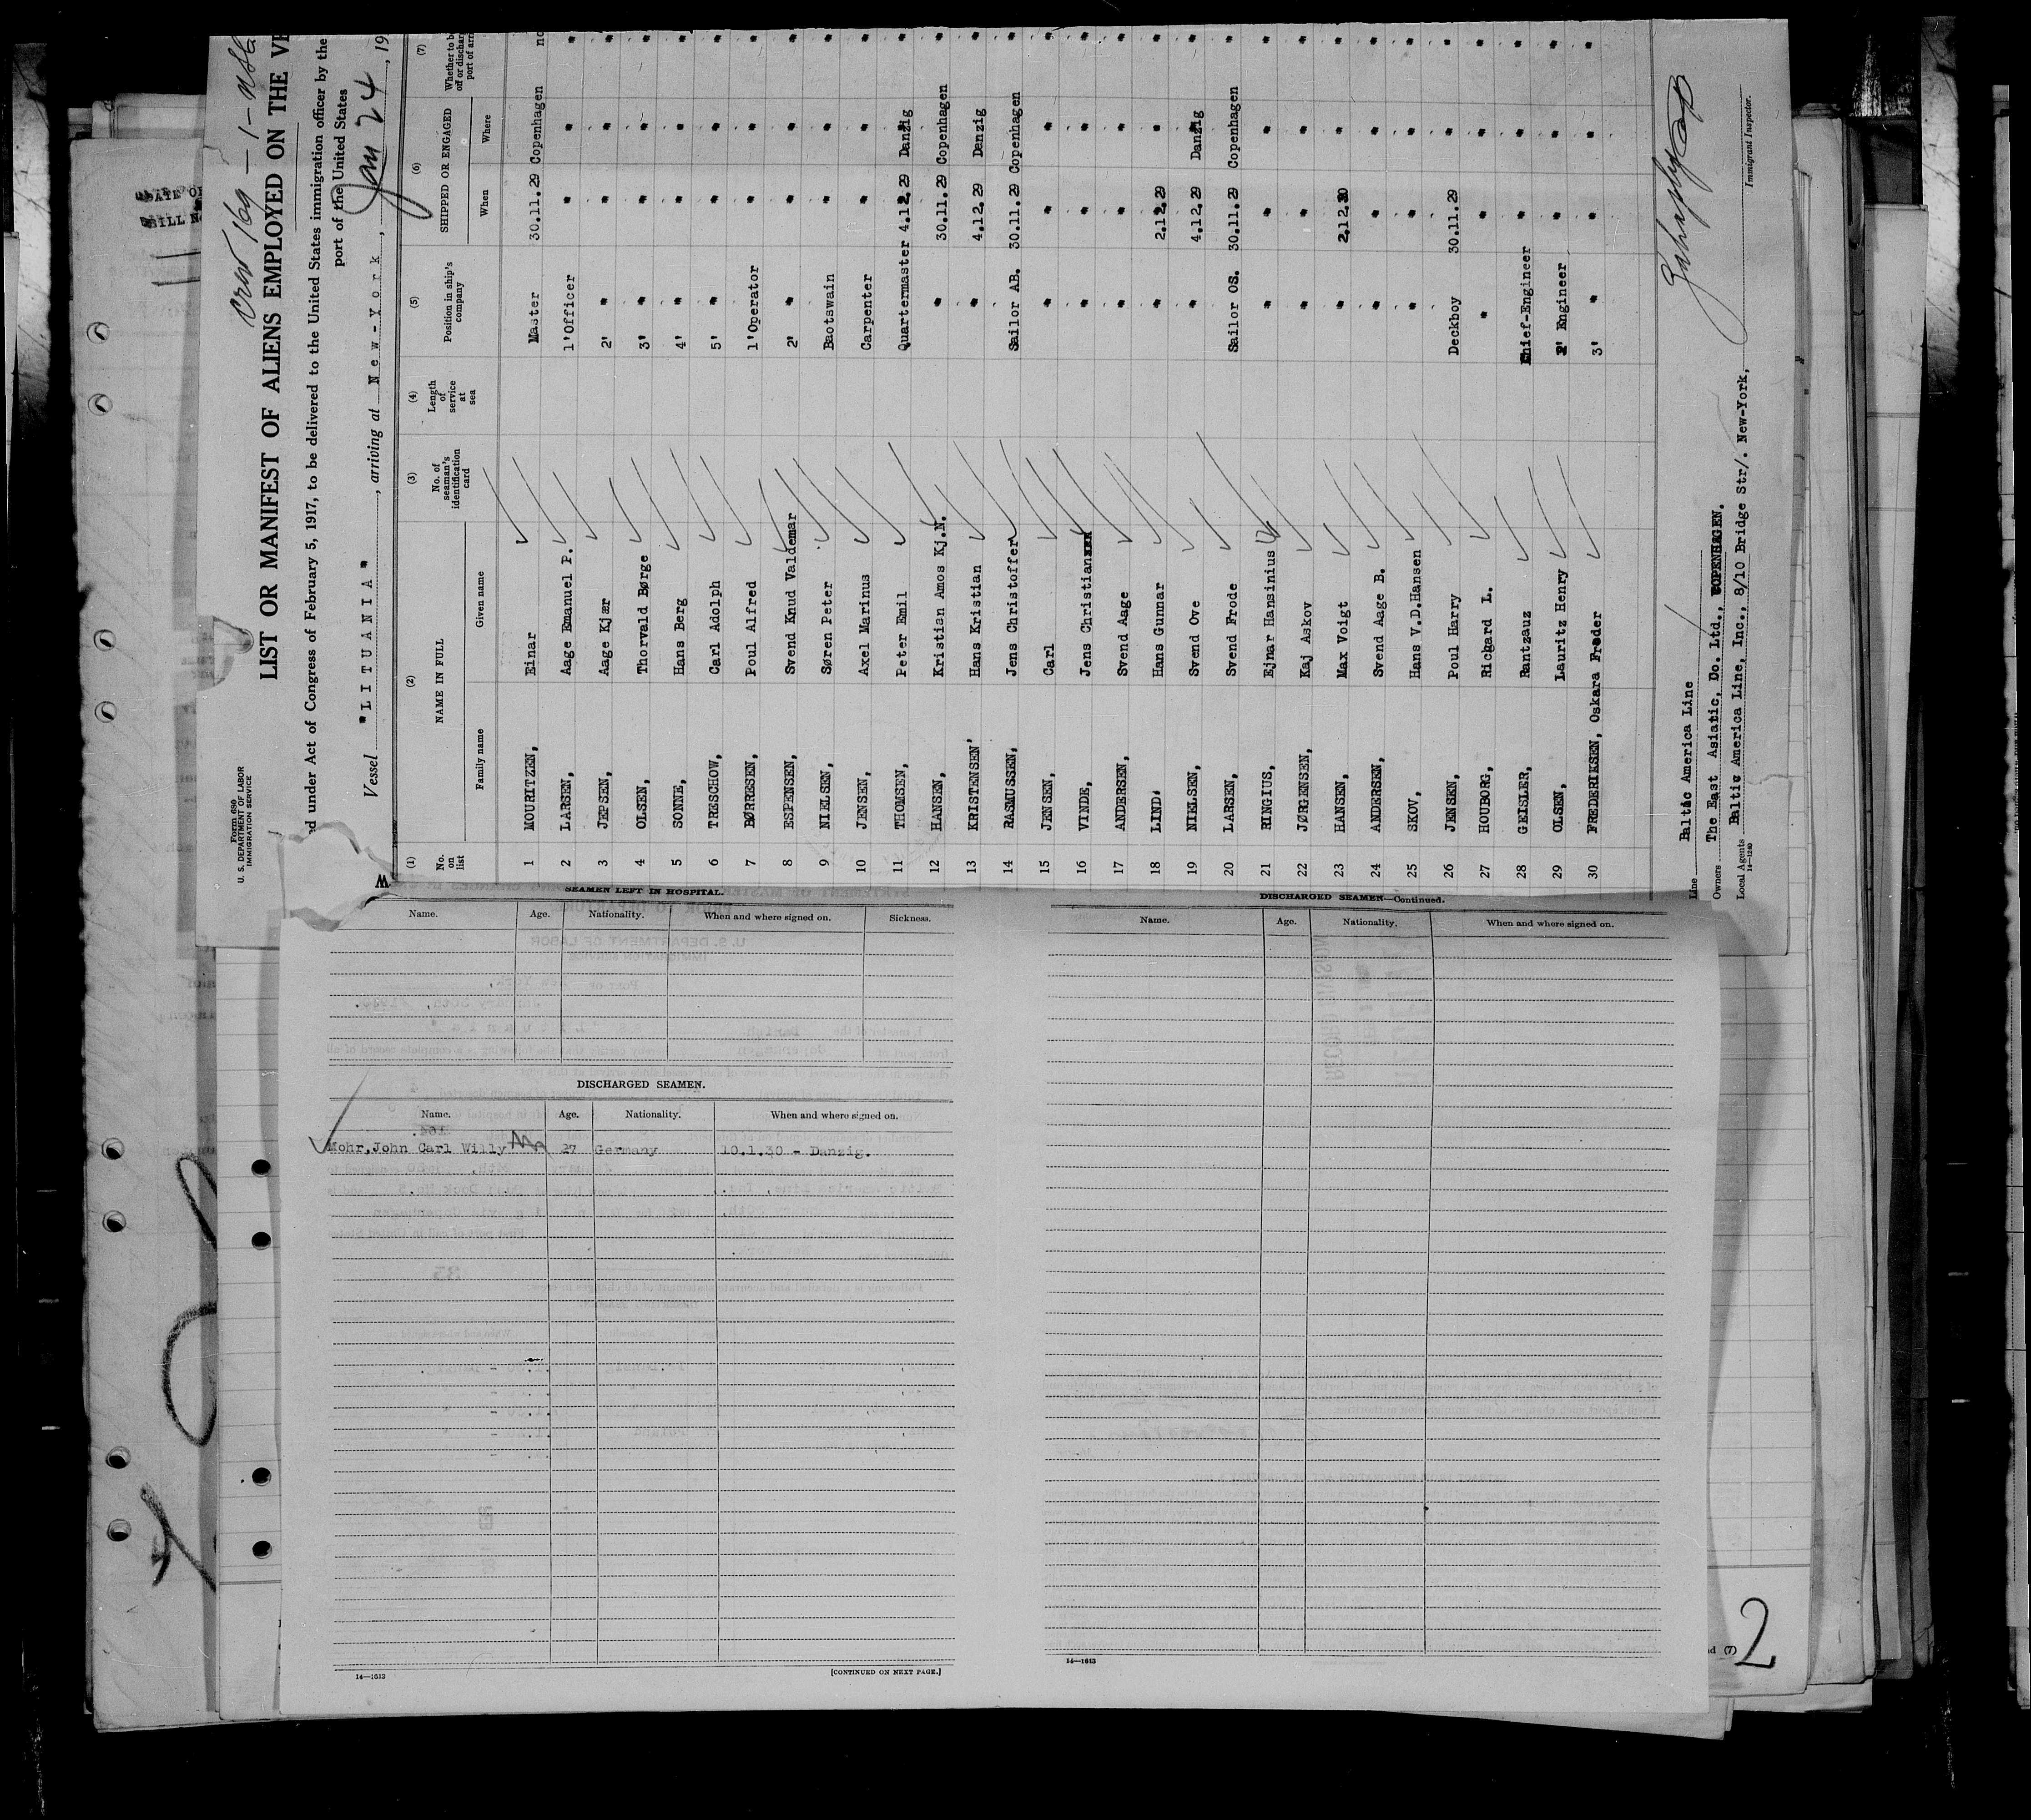 Form 680
U. S. DEPARTMENT OF LABOR
IMMIGRATION SERVICE
LIST OR MANIFEST OF ALIENS EMPLOYED ON THE
under Act of Congress of February 5, 1917, to be delivered to the United States immigration officer by the
port of the United States
Vessel "LITUANIA", arriving at New-York, Jan 24, 19
(1) (2) (3) (4) (5) (6) (7)
No. on list NAME IN FULL No. of seaman's identification card Length of service at sea Position in ship's company SHIPPED OR ENGAGED Whether to b
off or dischar
port of arr
Family name Given name When Where
1 MOURITZEN, Einar Master 30.11.29 Copenhagen no
2 LARSEN, Aage Emanuel P. 1'Officer " " "
3 JEPSEN, Aage Kjær 2' " " " "
4 OLSEN, Thorvald Børge 3' " " " "
5 SONNE, Hans Berg 4' " " " "
6 TRESCHOW, Carl Adolph 5' " " " "
7 BØRRESEN, Poul Alfred 1'Operator " " "
8 ESPENSEN, Svend Knud Valdemar 2' " " " "
9 NIELSEN, Søren Peter Baotswain " " "
10 JENSEN, Axel Marinus Carpenter " " "
11 THOMSEN, Peter Emil Quartermaster 4.12.29 Danzig "
12 HANSEN, Kristian Amos Kj.N. " 30.11.29 Copenhagen "
13 KRISTENSEN' Hans Kristian " 4.12.29 Danzig "
14 RASMUSSEN, Jens Christoffer Sailor AB. 30.11.29 Copenhagen "
15 JENSEN, Carl " " " "
16 VINDE, Jens Christian " " " "
17 ANDERSEN, Svend Aage " " " "
18 LIND, Hans Gunnar " 2.12.29 " "
19 NIELSEN, Svend Ove " 4.12.29 Danzig "
20 LARSEN, Svend Frode Sailor OS. 30.11.29 Copenhagen "
21 RINGIUS, Ejnar Hansinius " " " "
22 JØRGENSEN, Kaj Askov " " " "
23 HANSEN, Max Voigt " 2.12.30 " "
24 ANDERSEN, Svend Aage B. " " " "
25 SKOV, Hans V.D.Hansen " " " "
26 JENSEN, Poul Harry Deckboy 30.11.29 " "
27 HOUBORG, Richard L. " " " "
28 GEISLER, Rantzauz Chief-Engineer " " "
29 OLSEN, Lauritz Henry 2' Engineer " " "
30 FREDERIKSEN, Oskara Freder 3' " " " "
Line Baltic America Line
Owners The East Asiatic, Do. Ltd., COPENHAGEN.
Local Agents Baltic America Line, Inc., 8/10 Bridge Str/. New-York,
14—1240
Immigrant Inspector.
SEAMEN LEFT IN HOSPITAL.
Name. Age. Nationality. When and where signed on. Sickness.
DISCHARGED SEAMEN.
Name. Age. Nationality. When and where signed on.
Mohr, John Carl Willy 27 Germany 10.1.30 - Danzig.
14—1613 [CONTINUED ON NEXT PAGE.]
DISCHARGED SEAMEN—Continued.
Name. Age. Nationality. When and where signed on.
14—1613
(7)
2